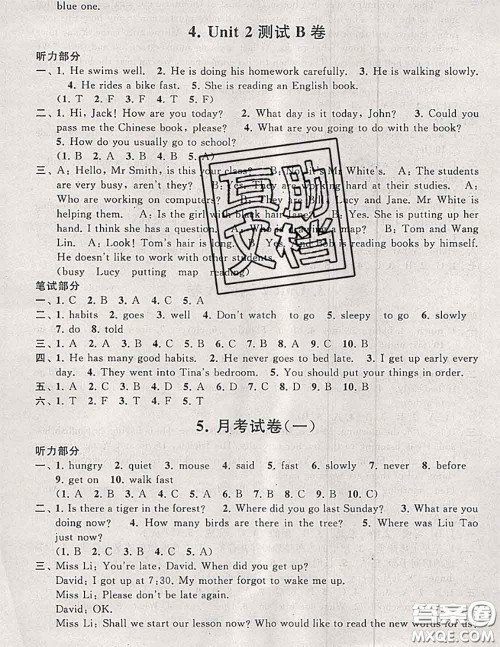 blue one.
4. Unit 2 测试 B 卷
听力部分
一、1. He swims well. 2. He is doing his homework carefully. 3. He is walking slowly.
4. He rides a bike fast. 5. She is reading an English book.
(1. T 2. F 3. F 4. T 5. F)
二、1. Hi, Jack! How are you today? 2. What day is it today, John? 3. Could you
pass me the Chinese book, please? 4. What are you going to do with the book?
5. How do you usually go to school?
(1. B 2. C 3. A 4. B 5. A)
三、A: Hello, Mr Smith, is this your class? B: No. It's Mr White's. A: The students
are very busy, aren't they? B: Yes. They are working hard at their studies. A:
Who are working on computers? B: Lucy and Jane. Mr White is
helping them. A: Is the girl with black hair B: Yes. She is putting up her
hand. I think she has a question. A: Who is a map? B: Tom and Wang
Lin. A: Look! Tom's hair is long. B: Yes, and Bob is reading books by himself.
He doesn't like to work with other students.
(busy Lucy putting map reading)
笔试部分
一、1. C 2. B 3. A 4. C 5. A
二、1. habits 2. goes 3. well 4. Don't watch to go 5. sleepy to go 6. slowly
7. do 8. told
三、1. B 2. C 3. A 4. C 5. A 6. C 7. B 8. A 9. C 10. B
四、1. He has many good habits. 2. He never goes to bed late. 3. I get up early every
day. 4. They went into Tina's bedroom. 5. You should put your things in order.
五、1. A 2. C 3. D 4. A 5. C 6. A 7. D 8. D 9. B 10. B
六、1. T 2. F 3. T 4. F 5. T
5. 月考试卷(一)
听力部分
一、1. hungry 2. quiet 3. mouse 4. said 5. fast 6. slowly 7. never 8. before
9. get on 10. walk fast
(1. B 2. C 3. C 4. A 5. C 6. B 7. A 8. C 9. B 10. B)
二、1. Is there a tiger in the forest? 2. Where did you go last Sunday? 3. What are you
doing now? 4. How many birds are there in the tree? 5. Where was Liu Tao
just now?
(1. B 2. A 3. B 4. C 5. A)
三、Miss Li: You're late, David. When did you get up?
David: I got up at 7:30. My mother forgot to wake me up.
Miss Li: Please don't be late again.
David: OK.
Miss Li: Shall we start our lesson now? Who would like to read the new words for us
互助文档
答案圈
MXQE.COM